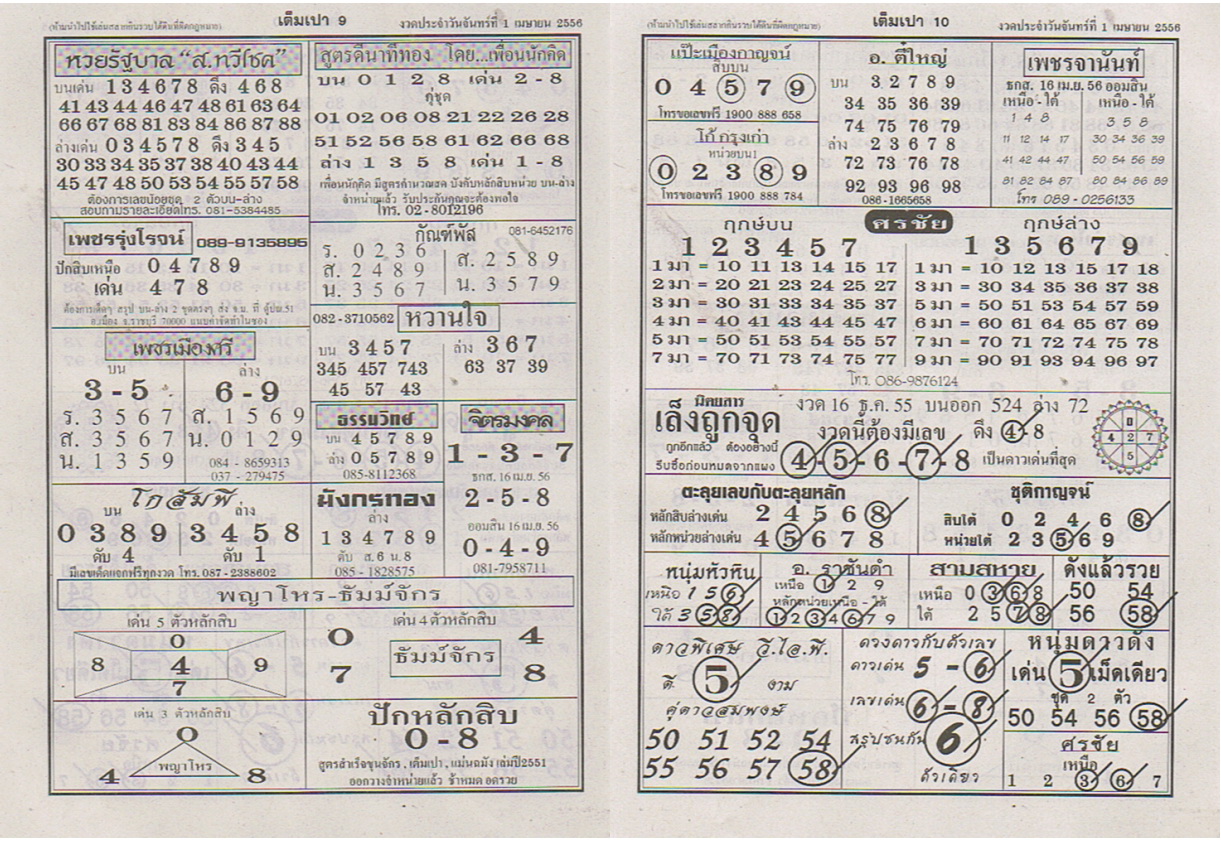 (ห้ามนำไปใช้เล่นสลากกินรวบได้ดินที่ผิดกฎหมาย) เต็มเปา 9 งวดประจำวันจันทร์ที่ 1 เมษายน 2556
หวยรัฐบาล "ส.ทวีโชค"
บนเด่น 1 3 4 6 7 8 ดึง 4 6 8
41 43 44 46 47 48 61 63 64
66 67 68 81 83 84 86 87 88
ล่างเด่น 0 3 4 5 7 8 ดึง 3 4 5
30 33 34 35 37 38 40 43 44
45 47 48 50 53 54 55 57 58
ต้องการเลขน้อยชุด 2 ตัวบน-ล่าง
สอบถามรายละเอียดโทร. 081-5384485
สูตรดีนาทีทอง โดย...เพื่อนนักคิด
บน 0 1 2 8 เด่น 2 - 8
คู่ชุด
01 02 06 08 21 22 26 28
51 52 56 58 61 62 66 68
ล่าง 1 3 5 8 เด่น 1 - 8
เพื่อนนักคิด มีสูตรคำนวณสด บังคับหลักสิบหน่วย บน-ล่าง
จำหน่ายแล้ว รับประกันคุณจะต้องพอใจ
โทร. 02 - 8012196
เพชรรุ่งโรจน์ 089-9135895
ปักสิบเหนือ 0 4 7 8 9
เด่น 4 7 8
กัณฑ์พัส 081-6452176
ร. 0 2 3 6
ส. 2 4 8 9 ส. 2 5 8 9
น. 3 5 6 7 น. 3 5 7 9
082 -3710562 หวานใจ
บน 3 4 5 7 ล่าง 3 6 7
345 457 743 63 37 39
45 57 43
เพชรเมืองศรี
บน ล่าง
3 - 5 6 - 9
ร. 3 5 6 7 ส. 1 5 6 9
ส. 3 5 6 7 น. 0 1 2 9
น. 1 3 5 9 084 - 8659313
037 - 279475
ธรรมวิทย์
บน 4 5 7 8 9
ล่าง 0 5 7 8 9
085-8112368
จิตรมงคล
1 - 3 - 7
ธกส. 16 เม.ย. 56
2 - 5 - 8
ออมสิน 16 เม.ย. 56
0 - 4 - 9
081-7958711
โกสัมพี
บน ล่าง
0 3 8 9 3 4 5 8
ดับ 4 ดับ 1
มีเลขคัดแยกฟรีทุกงวด โทร. 087 - 2388602
มังกรทอง
ล่าง
1 3 4 7 8 9
ดับ ส. 6 น. 8
085 - 1828575
พญาโหร-ธัมม์จักร
เด่น 5 ตัวหลักสิบ
0
8 4 9
7
เด่น 4 ตัวหลักสิบ
0 4
ธัมม์จักร
7 8
เด่น 3 ตัวหลักสิบ
0
พญาโหร
4 8
ปักหลักสิบ
0 - 8
สูตรสำเร็จขุนจักร , เต็มเปา , แม่นฉมัง เล่มปี2551
ออกวางจำหน่ายแล้ว ช้าหมด อดรวย
(ห้ามนำไปใช้เล่นสลากกินรวบได้ดินที่ผิดกฎหมาย) เต็มเปา 10 งวดประจำวันจันทร์ที่ 1 เมษายน 2556
แป๊ะเมืองกาญจน์
สิบบน
0 4 5 7 9
โทรขอเลขฟรี 1900 888 658
โก้ กรุงเก่า
หน่วยบน1
0 2 3 8 9
โทรขอเลขฟรี 1900 888 784
อ. ตี๋ใหญ่
บน 3 2 7 8 9
34 35 36 39
74 75 76 79
ล่าง 2 3 6 7 8
72 73 76 78
92 93 96 98
086-1665658
เพชรจานันท์
ธกส. 16 เม.ย. 56 ออมสิน
เหนือ - ใต้ เหนือ - ใต้
1 4 8 3 5 8
11 12 14 17 30 34 36 39
41 42 44 47 50 54 56 59
81 82 84 87 80 84 86 89
โทร 089 - 0256133
ฤกษ์บน ศรชัย ฤกษ์ล่าง
1 2 3 4 5 7 1 3 5 6 7 9
1 มา = 10 11 13 14 15 17 1 มา = 10 12 13 15 17 18
2 มา = 20 21 23 24 25 27 3 มา = 30 34 35 36 37 38
3 มา = 30 31 33 34 35 37 5 มา = 50 51 53 54 57 59
4 มา = 40 41 43 44 45 47 6 มา = 60 61 64 65 67 69
5 มา = 50 51 53 54 55 57 7 มา = 70 71 72 74 75 78
7 มา = 70 71 73 74 75 77 9 มา = 90 91 93 94 96 97
โทร. 086-9876124
นิตยสาร เล็งถูกจุด งวด 16 ธ.ค. 55 บนออก 524 ล่าง 72
งวดนี้ต้องมีเลข ดึง 4 8
ถูกอีกแล้ว ต้องอย่างนี้
รีบซื้อก่อนหมดจากแผง 4 - 5 - 6 - 7 - 8 เป็นดาวเด่นที่สุด
8
4 2 7
5
ตะลุยเลขกับตะลุยหลัก
หลักสิบล่างเด่น 2 4 5 6 8
หลักหน่วยล่างเด่น 4 5 6 7 8
ชุติกาญจน์
สิบใต้ 0 2 4 6 8
หน่วยใต้ 2 3 5 6 9
หนุ่มหัวหิน
เหนือ 1 5 6
ใต้ 3 5 8
อ. ราชันดำ
เหนือ 1 2 9
หลักหน่วยเหนือ - ใต้
1 2 3 4 6 7 9
สามสหาย
เหนือ 0 3 6 8
ใต้ 2 5 7 8
ดังแล้วรวย
50 54
56 58
ดาวพิเศษ วี.ไอ.พี.
ดี 5 งาม
คู่ดาวสมพงษ์
50 51 52 54
55 56 57 58
ดวงดาวกับตัวเลข
ดาวเด่น 5 - 6
เลขเด่น 6 - 8
สรุปชนกัน 6
ตัวเดียว
หนุ่มดาวดัง
เด่น 5 เม็ดเดียว
ชุด 2 ตัว
50 54 56 58
ศรชัย
เหนือ
1 2 3 6 7